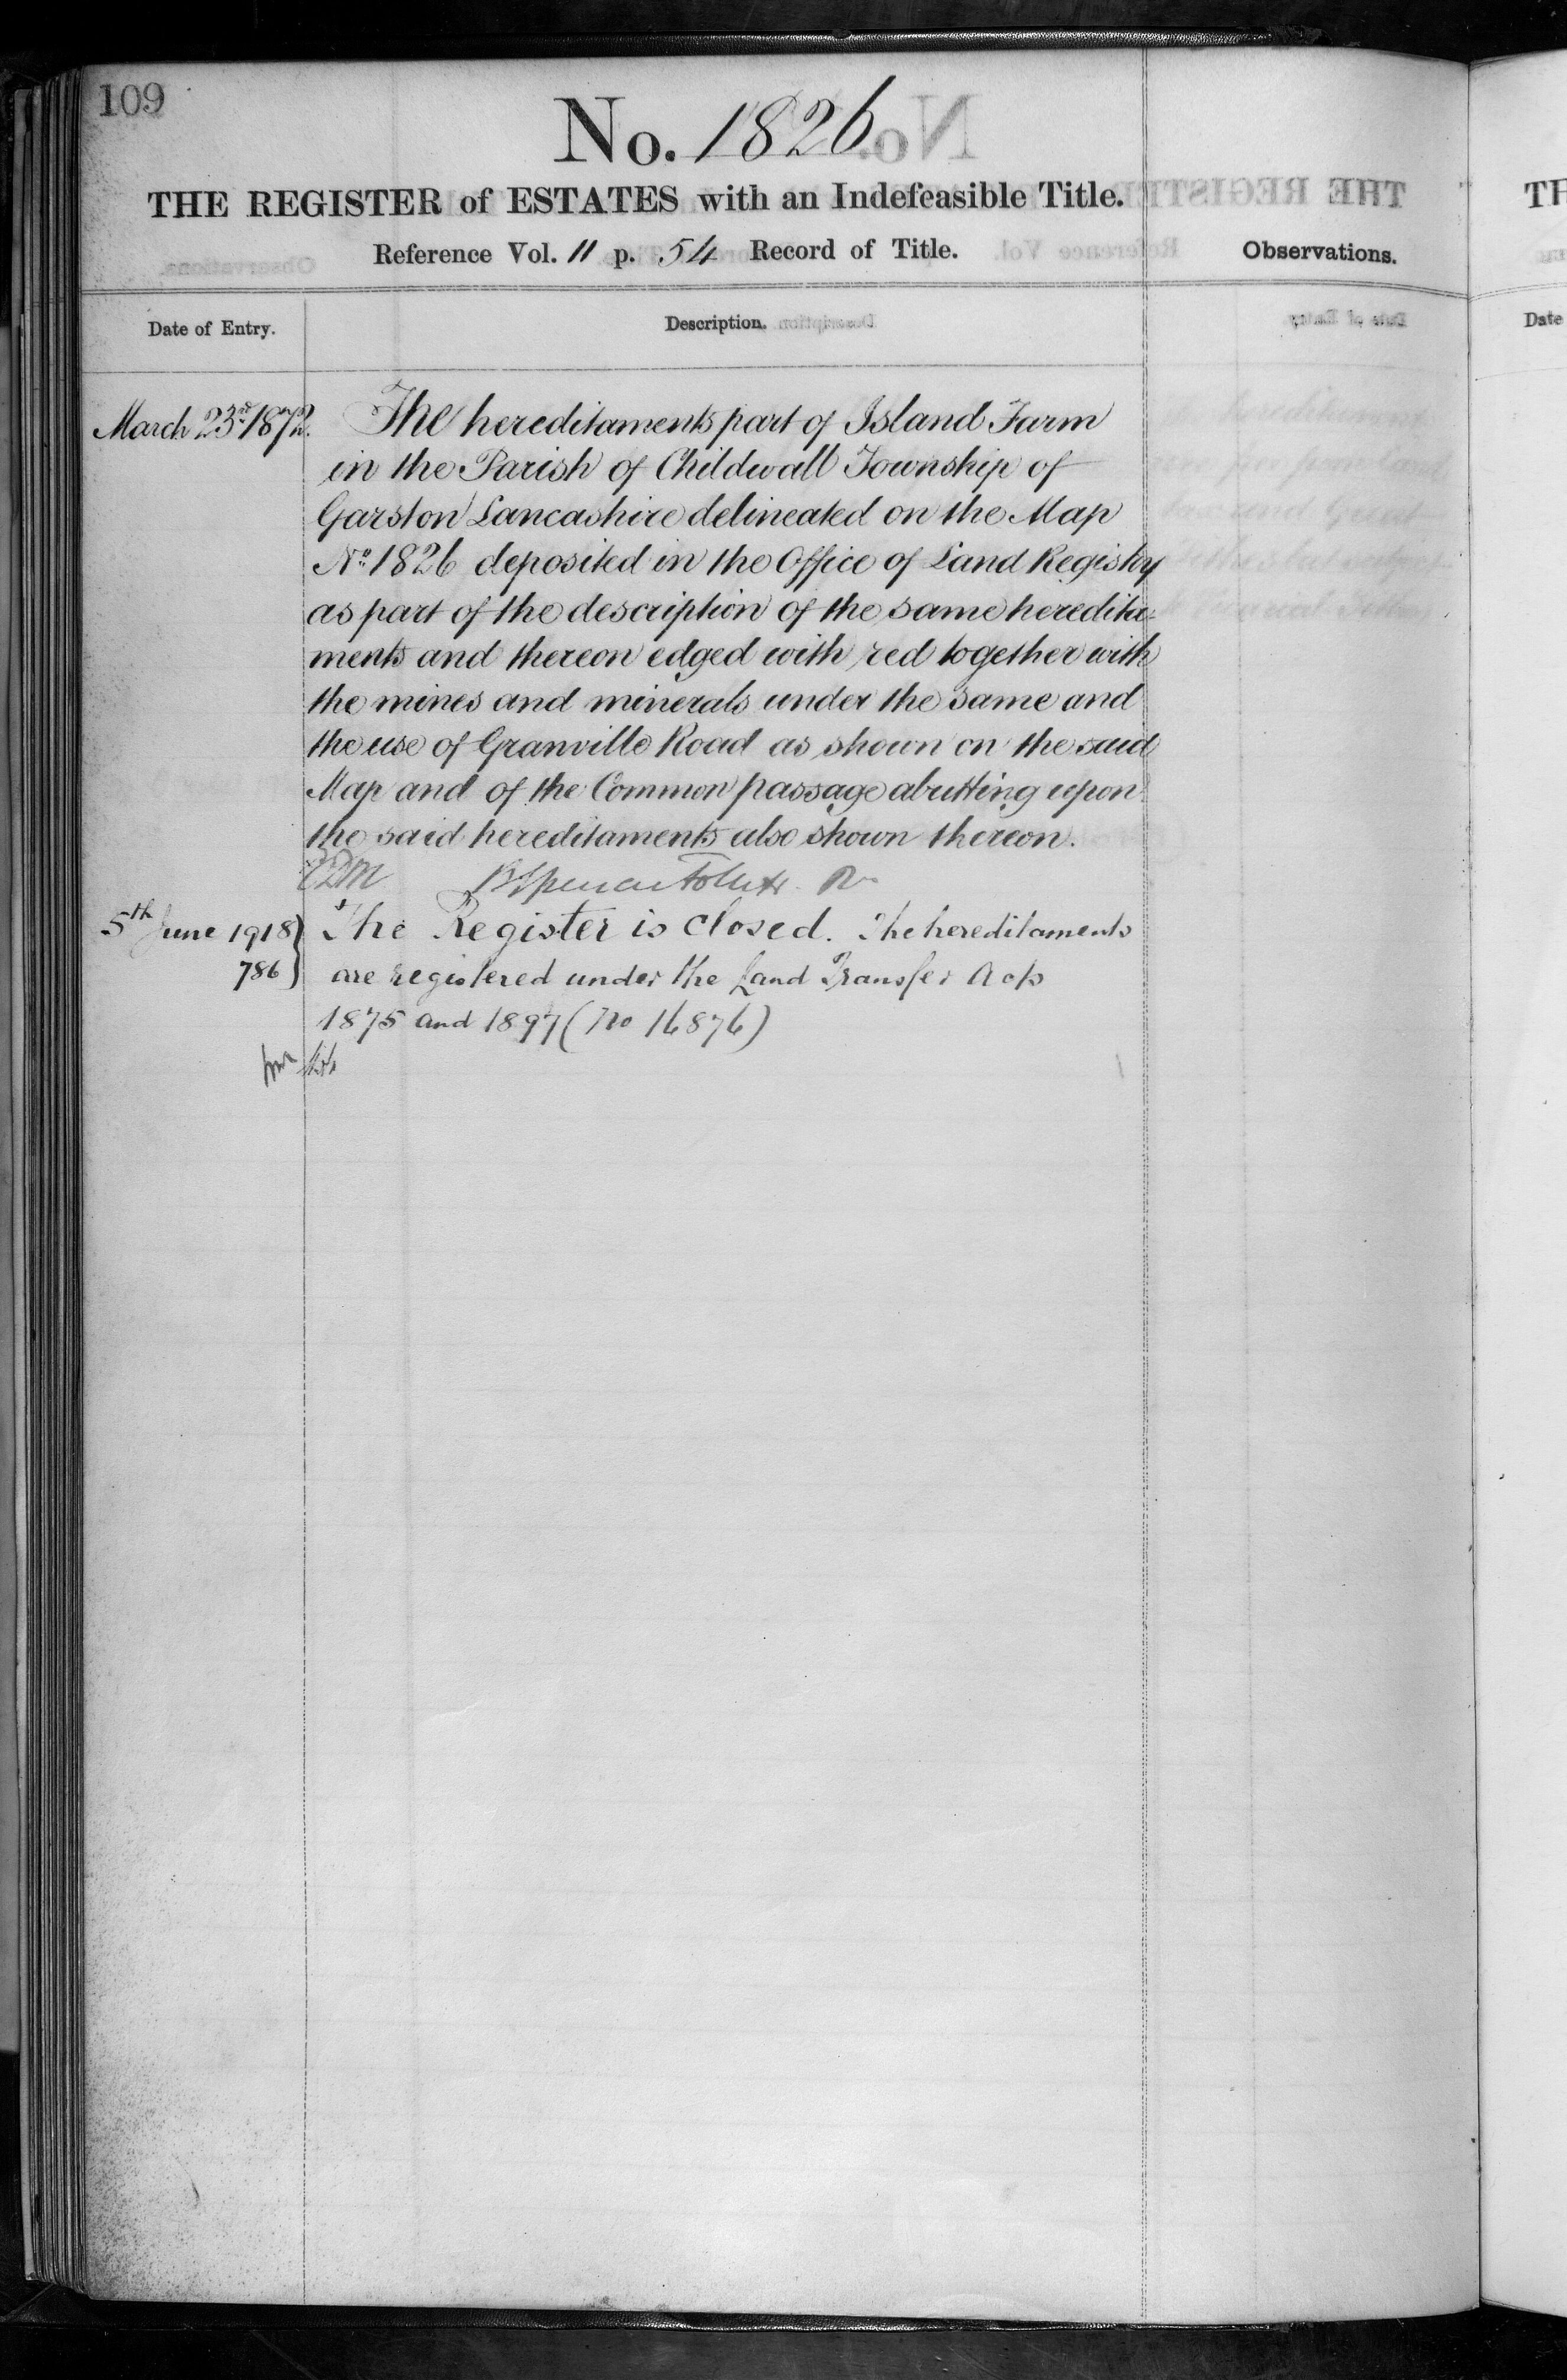 109
No. 1826
THE REGISTER of ESTATES with an Indefeasible Title.
Reference Vol. 11 p. 54 Record of Title.
Observations.
Date of Entry.
Description.
March 23rd 1872.
The hereditaments part of Island Farm
in the Parish of Childwall Township of
Garston Lancashire delineated on the Map
No. 1826 deposited in the Office of Land Registry
as part of the description of the same heredita-
ments and thereon edged with red together with
the mines and minerals under the same and
the use of Granville Road as shown on the said
Map and of the Common passage abutting upon
the said hereditaments also shown thereon.
5th June 1918
786
The Register is closed. The hereditaments
are registered under the Land Transfer Acts
1875 and 1897 (No 16876)
TH
Date